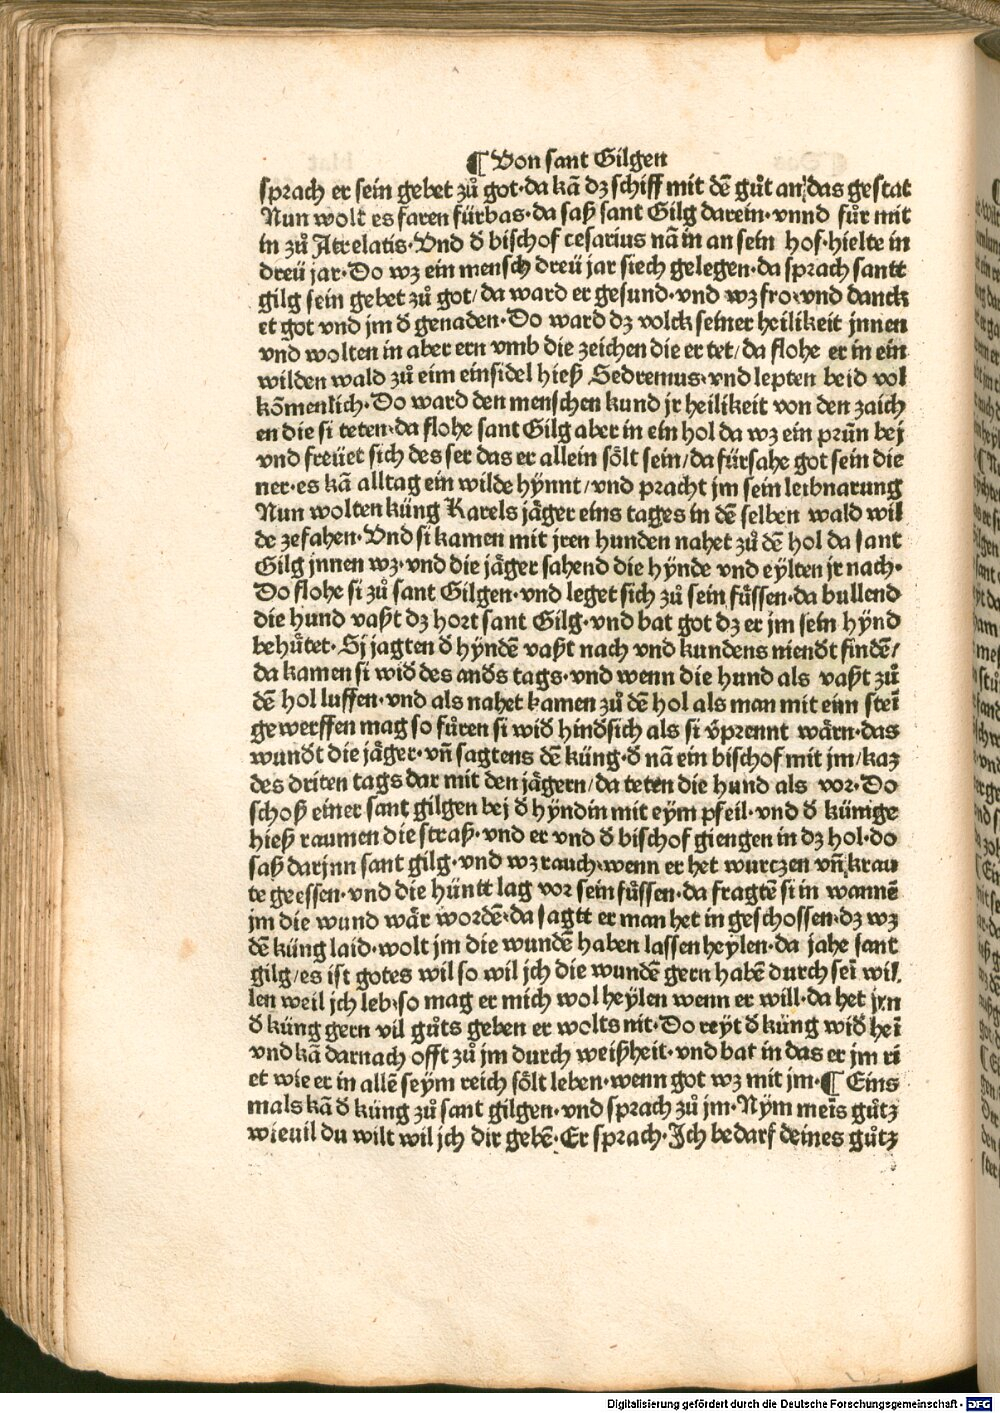 ¶ Von sant Gilgen
sprach er sein gebet zů got·da kā dz schiff mit dē gůt an das gestat
Nun wolt es faren fürbas·da saß sant Gilg darein·vnnd fůr mit
in zů Atrelatis·Vnd đ bischof cesarius nā in an sein hof·hielte in
dreü jar·Do wz ein mensch dreü jar siech gelegen·da sprach santt
gilg sein gebet zů got/da ward er gesund·vnd wz fro·vnd danck
et got vnd jm đ genaden·Do ward dz volck seiner heilikeit jnnen
vnd wolten in aber ern vmb die zeichen die er tet/da flohe er in ein
wilden wald zů eim einsidel hieß Sedremus·vnd lepten beid vol
kōmenlich·Do ward den menschen kund jr heilikeit von den zaich
en die si teten·da flohe sant Gilg aber in ein hol da wz ein prūn bej
vnd freüet sich des ser das er allein sölt sein/da fürsahe got sein die
ner·es kā alltag ein wilde hÿnnt/vnd pracht jm sein leibnarung
Nun wolten küng Karels jäger eins tages in dē selben wald wil
de zefahen·Vnd si kamen mit jren hunden nahet zů dē hol da sant
Gilg jnnen wz·vnd die jäger sahend die hÿnde vnd eÿlten jr nach·
Do flohe si zů sant Gilgen·vnd leget sich zů sein füssen·da bullend
die hund vaßt dz hort sant Gilg·vnd bat got dz er jm sein hÿnd
behüͤtet·Sj jagten đ hÿndē vaßt nach vnd kundens niendt findē/
da kamen si wiđ des anđs tags·vnd wenn die hund als vaßt zů
dē hol luffen·vnd als nahet kamen zů dē hol als man mit eim stei
gewerffen mag so fůren si wiđ hinđsich als si v̄prennt wärn·das
wundt die jäger·vn̄ sagtens dē küng·đ nā ein bischof mit jm/kaz
des driten tags dar mit den jägern/da teten die hund als vor·Do
schoß einer sant gilgen bej đ hÿndin mit eÿm pfeil·vnd đ künige
hieß raumen die straß·vnd er vnd đ bischof giengen in dz hol·do
saß darjnn sant gilg·vnd wz rauch·wenn er het wurtzen vn̄ krau
te geessen·vnd die hüntt lag vor sein füssen·da fragtē si in wannē
jm die wund wär wordē·da sagtt er man het in geschossen·dz wz
dē küng laid·wolt jm die wundē haben lassen heÿlen·da jahe sant
gilg/es ist gotes wil so wil jch die wundē gern habē durch sei wil
len weil jch leb·so mag er mich wol heÿlen wenn er will·da het jm
đ küng gern vil gůts geben er wolts nit·Do reÿt đ küng wiđ hei
vnd kā darnach offt zů jm durch weißheit·vnd bat in das er jm ri
et wie er in allē seÿm reich sölt leben·wenn got wz mit jm·¶ Eins
mals kā đ küng zů sant gilgen·vnd sprach zů jm·Nÿm meis gůtz
wieuil du wilt wil jch dir gebē·Er sprach·Jch bedarf deines gůtz
Digitalisierung gefördert durch die Deutsche Forschungsgemeinschaft - DFG